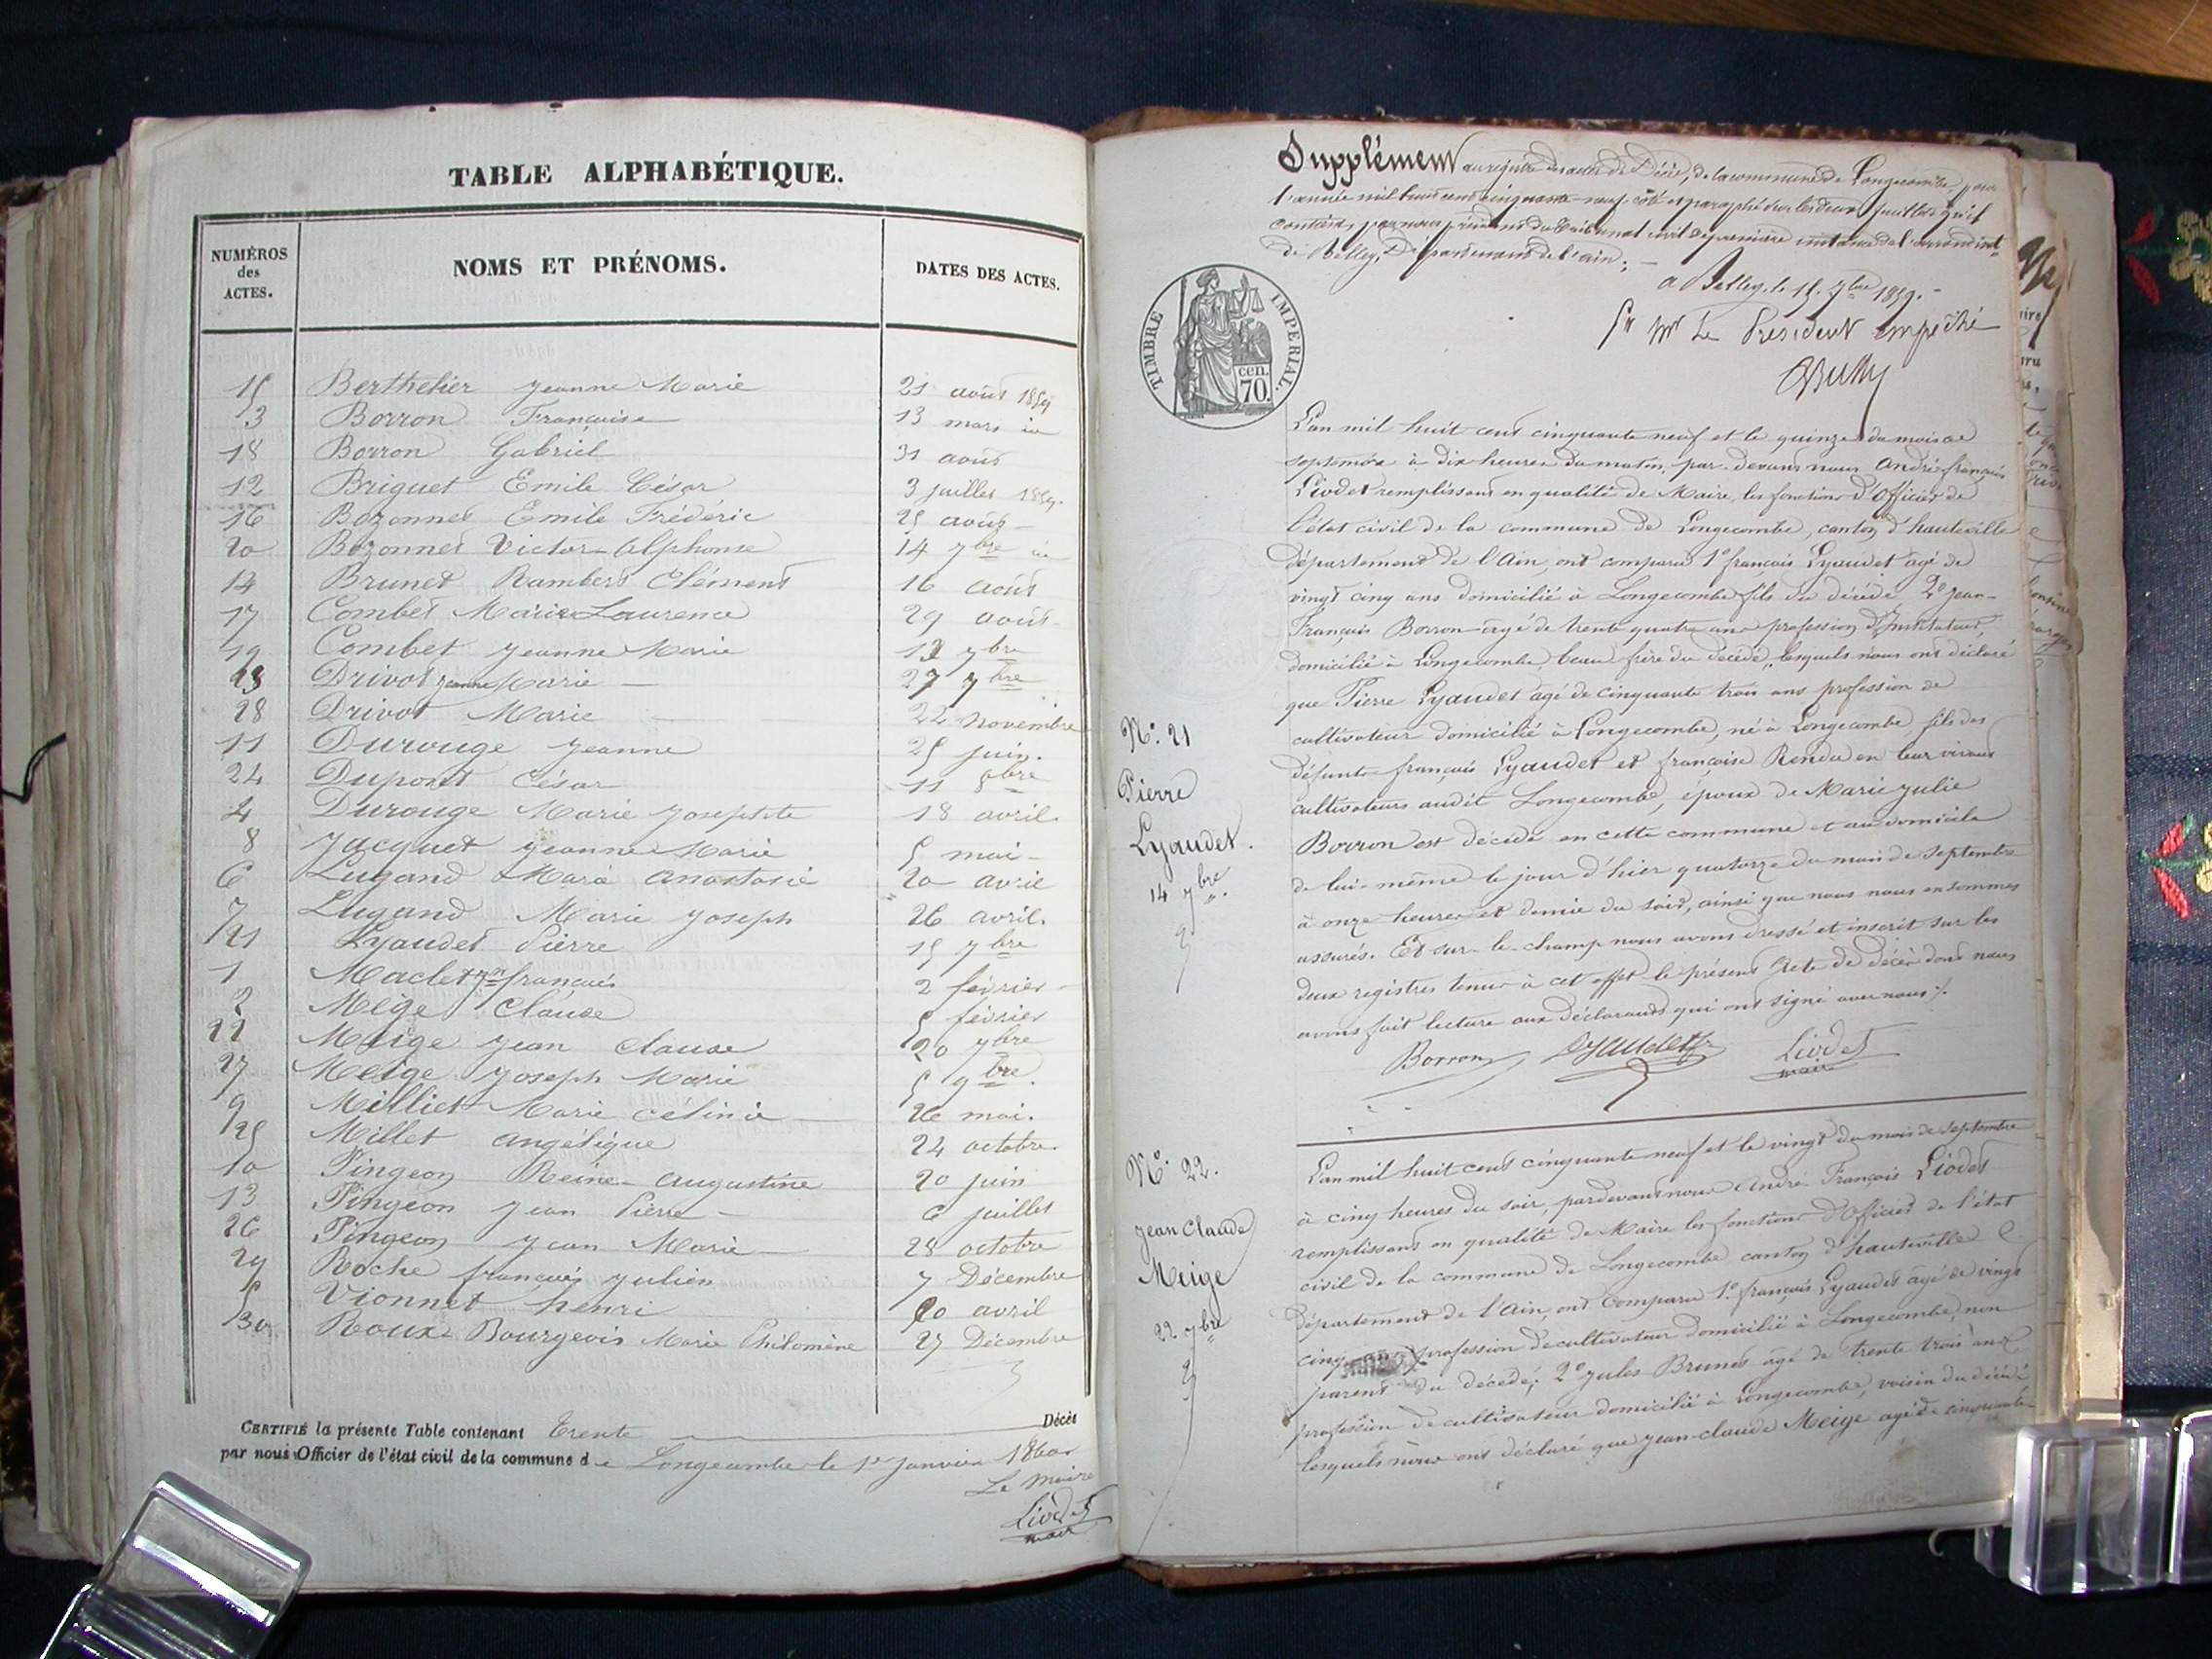 TABLE ALPHABÉTIQUE.
NUMÉROS des ACTES.
NOMS ET PRÉNOMS.
DATES DES ACTES.
15 Berthelier Jeanne Marie 21 août 1859
3 Borron Françoise 13 mars
18 Borron Gabriel 31 août
12 Briguet Emile César 3 juillet 1859.
16 Bozonnet Emile Frédéric 25 août
20 Bozonnet Victor-Alphonse 14 7bre
14 Brunet Rambert Clément 16 août
17 Combet Marie Laurence 29 août
19 Combet Jeanne Marie 7bre
23 Drivot Jeanne Marie 27 7bre
28 Drivot Marie 22 novembre
11 Durouge Jeanne 25 juin.
24 Dupont César 11 8bre
4 Durouge Marie Josephte 18 avril.
8 Jacquet Jeanne Marie 5 mai
6 Lugand Marie Anastasie 20 avril
7 Lugand Marie Joseph 26 avril.
21 Lyaudet Pierre 15 7bre
1 Maclet françois 2 février
2 Mège Claude 5 février
22 Meige Jean Claude 20 7bre
27 Meige Joseph Marie 5 9bre.
9 Milliet Marie Célinie 26 mai.
25 Millet Angélique 24 octobre.
10 Pingeon Reine-Augustine 20 juin
13 Pingeon Jean Pierre 6 juillet
26 Pingeon Jean Marie 28 octobre
29 Roche françois Julien 7 Décembre
5 Vionnet henri 20 avril
30 Roux Bourgeois Marie Philomène 27 Décembre
CERTIFIÉ la présente Table contenant trente Décès
par nous Officier de l'état civil de la commune de Longecombe le 1er Janvier 1860
Le Maire
Liodet
maire
Supplément au registre des actes de Décès, de la commune de Longecombe, pour
l'année mil huit cent cinquante-neuf côté et paraphé sur les deux feuillets qu'il
contient, par nous président du Tribunal civil de première instance de l'arrondisst
de Belley, Département de l'ain;
a Belley, le 15 7bre 1859.
Pr Mr Le Président empêché
TIMBRE IMPÉRIAL.
cen.
70.
L'an mil huit cent cinquante neuf et le quinze du mois de
septembre à dix heures du matin, par-devant nous André françois
Liodet remplissant en qualité de Maire, les fonctions d'Officier de
l'état civil de la commune de Longecombe, canton d'hauteville
département de l'Ain, ont comparu 1° françois Lyaudet agé de
vingt cinq ans domicilié à Longecombe fils du décédé 2° Jean-
François Borron agé de trente quatre ans profession d'Instituteur,
domicilié à Longecombe, beau frère du décédé, lesquels nous ont déclaré
que Pierre Lyaudet agé de cinquante trois ans profession de
cultivateur domicilié à Longecombe, né à Longecombe fils des
défunts françois Lyaudet et françoise Rendu en leur vivant
cultivateurs audit Longecombe, époux de Marie Julie
Borron est décédé en cette commune et au domicile
de lui-même le jour d'hier quatorze du mois de septembre
à onze heures et demie du soir, ainsi que nous nous en sommes
assurés. Et sur-le-champ nous avons dressé et inscrit sur les
deux registres tenus à cet effet le présent Acte de décès dont nous
avons fait lecture aux déclarants qui ont signé avec nous.
N°. 21
Pierre
Lyaudet.
14 7bre.
Borron Lyaudet Liodet
maire
N° 22.
Jean Claude
Meige
22 7bre
L'an mil huit cent cinquante neuf et le vingt du mois de septembre
à cinq heures du soir, pardevant nous André François Liodet
remplissant en qualité de Maire les fonctions d'Officier de l'état
civil de la commune de Longecombe canton d'hauteville
département de l'Ain, ont comparu 1° françois Lyaudet agé de vingt
cinq profession de cultivateur domicilié à Longecombe, non
parent du décédé; 2° Jules Brunet agé de trente trois ans
profession de cultivateur domicilié à Longecombe, voisin du décédé
lesquels nous ont déclaré que Jean-claude Meige agé de cinquante